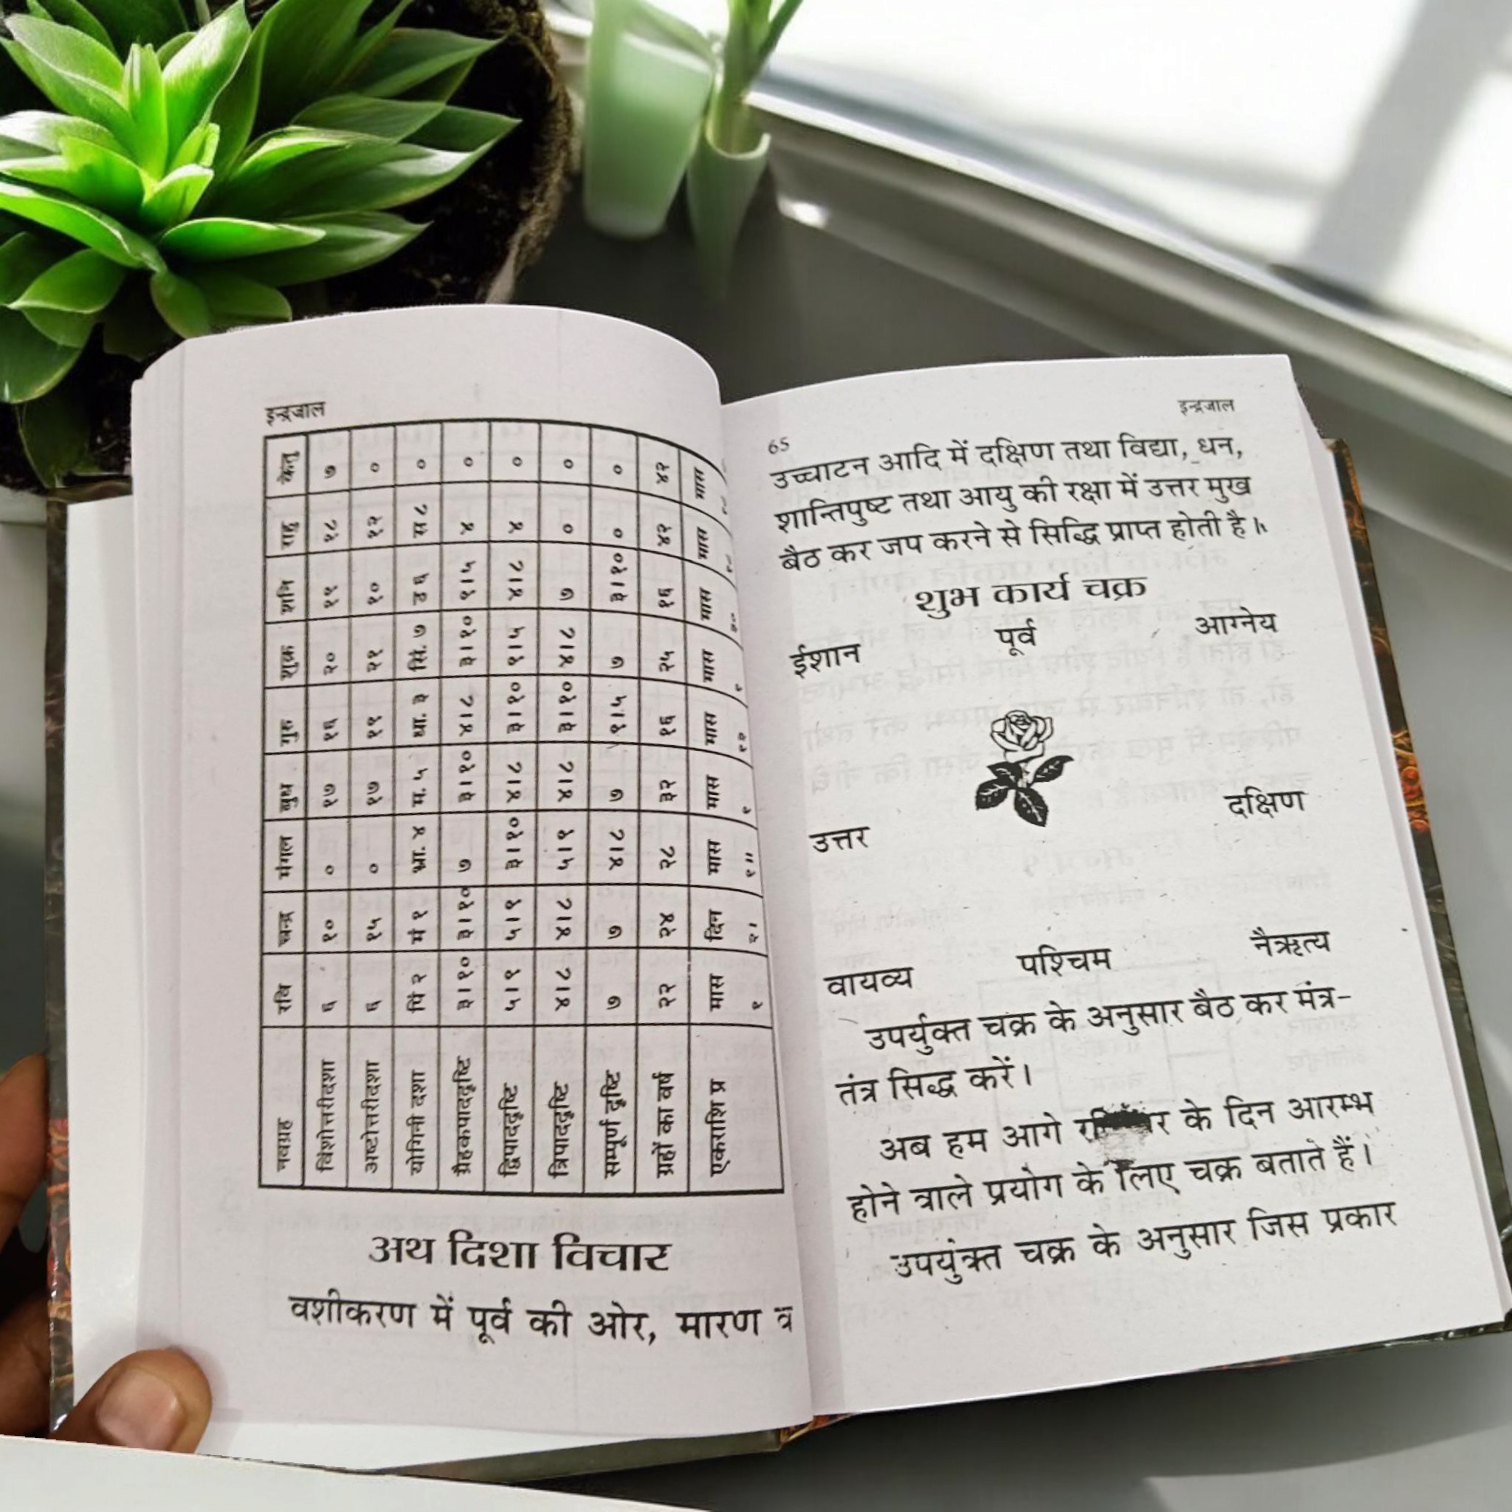 इन्द्रजाल
नवग्रह रवि चन्द्र मंगल बुध गुरु शुक्र शनि राहु केतु
विंशोत्तरीदशा ६ १० ० १७ १६ २० १९ १८ ७
अष्टोत्तरीदशा ६ १५ ० १७ १९ २१ १० १२ ०
योगिनी दशा पिं २ मं १ भ्रा. ४ म. ५ धा. ३ सिं. ७ उ ६ स ८ ०
३।१० ३।१० ७ ३।१० ४।८ ३।१० १।५ ४ ०
द्विपाददृष्टि ५।९ ५।९ ३।१० ४।८ ३।१० १।५ ४।८ ४ ०
त्रिपाददृष्टि ४।८ ४।८ ५।९ ४।८ ३।१० ४।८ ७ ० ०
सम्पूर्ण दृष्टि ७ ७ ४।८ ७ १।५ ७ ३।१० ० ०
ग्रहों का वर्ष २२ २४ २८ ३२ १६ २५ १६ ४२ ४२
एकराशि प्र मास दिन मास मास मास मास मास मास मास
अथ दिशा विचार
वशीकरण में पूर्व की ओर, मारण
इन्द्रजाल
65
उच्चाटन आदि में दक्षिण तथा विद्या, धन,
शान्तिपुष्ट तथा आयु की रक्षा में उत्तर मुख
बैठ कर जप करने से सिद्धि प्राप्त होती है।
शुभ कार्य चक्र
ईशान पूर्व आग्नेय
उत्तर दक्षिण
वायव्य पश्चिम नैऋत्य
उपर्युक्त चक्र के अनुसार बैठ कर मंत्र-
तंत्र सिद्ध करें।
अब हम आगे के दिन आरम्भ
होने वाले प्रयोग के लिए चक्र बताते हैं।
उपयुंक्त चक्र के अनुसार जिस प्रकार